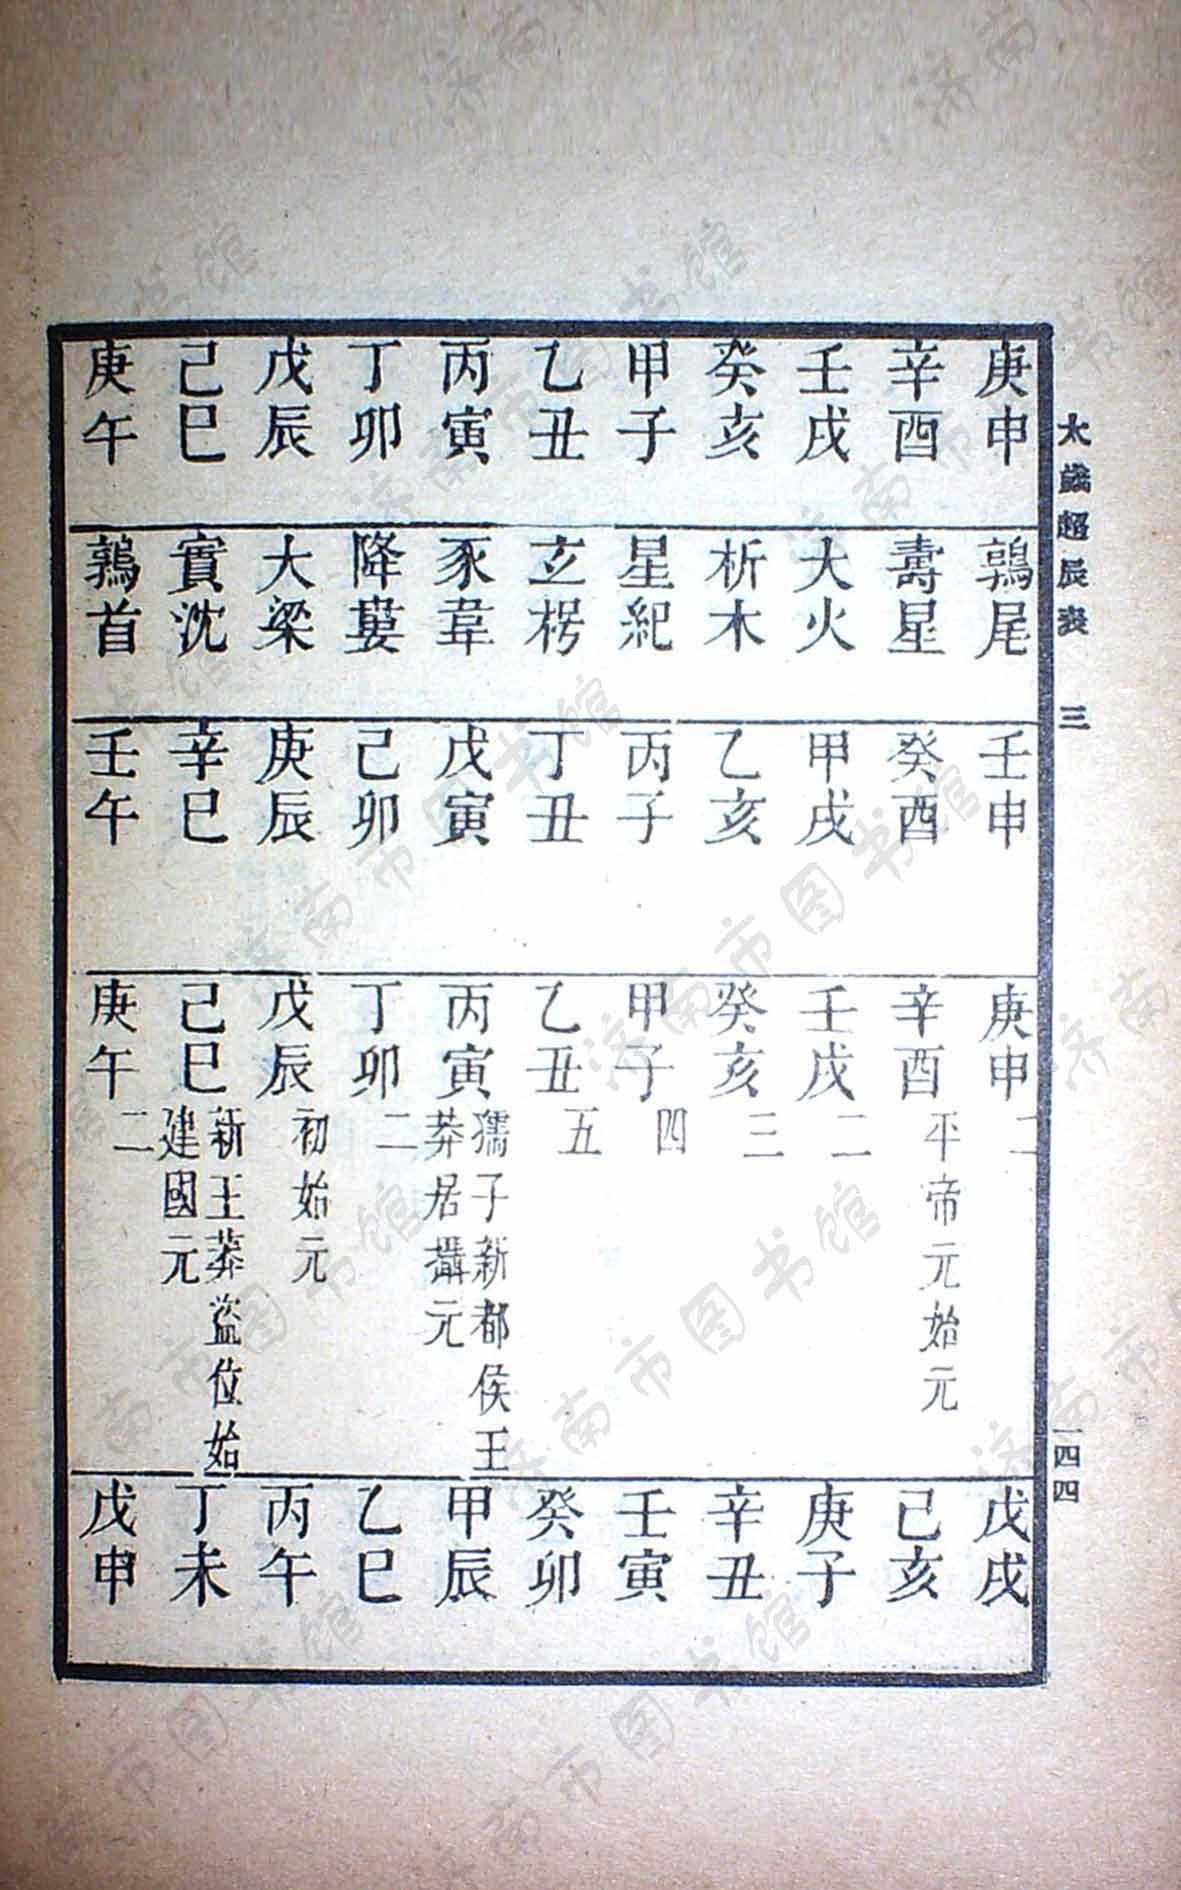 太歲超辰表 三 一四四
庚申 鶉尾 壬申 庚申 二 戊戌
辛酉 壽星 癸酉 辛酉 平帝元始元 己亥
壬戌 大火 甲戌 壬戌 二 庚子
癸亥 析木 乙亥 癸亥 三 辛丑
甲子 星紀 丙子 甲子 四 壬寅
乙丑 玄枵 丁丑 乙丑 五 癸卯
丙寅 豕韋 戊寅 丙寅 孺子新都侯王莽居攝元 甲辰
丁卯 降婁 己卯 丁卯 二 乙巳
戊辰 大梁 庚辰 戊辰 初始元 丙午
己巳 實沈 辛巳 己巳 新王莽盜位始建國元 丁未
庚午 鶉首 壬午 庚午 二 戊申
济南市图书馆